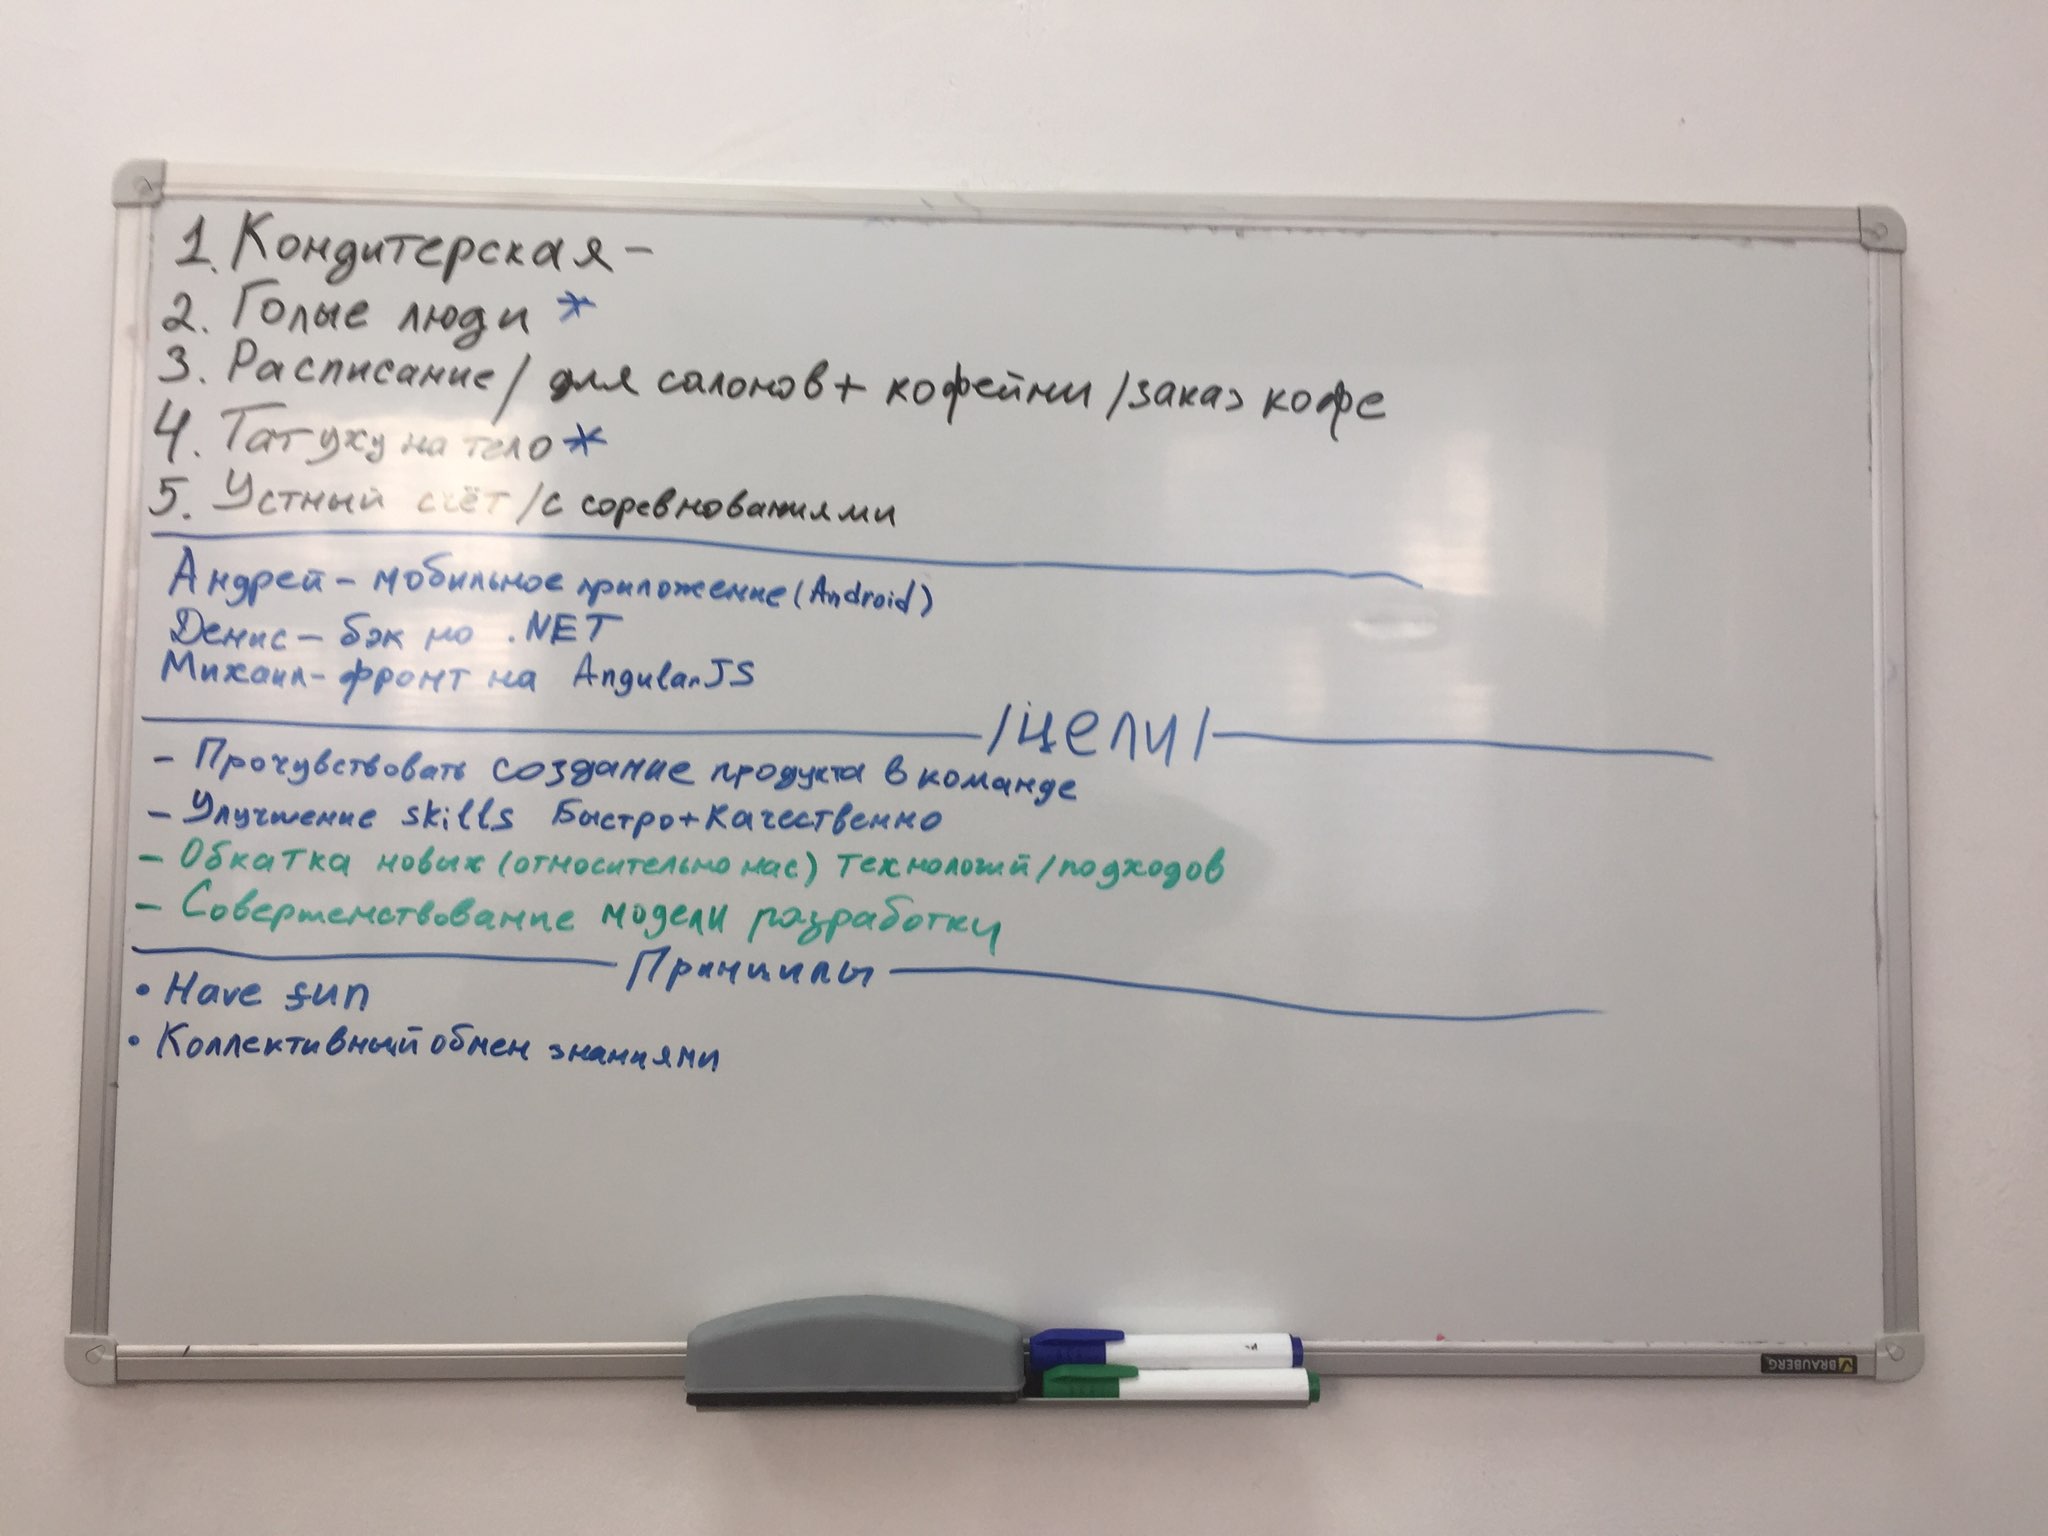 1. Кондитерская –
2. Голые люди *
3. Расписание / для салонов + кофейни / заказ кофе
4. Татуху на тело *
5. Устный счёт / с соревнованиями
Андрей – мобильное приложение (Android)
Денис – бэк но .NET
Михаил – фронт на AngularJS
/цели/
– Прочувствовать создание продукта в команде
– Улучшение skills Быстро + Качественно
– Обкатка новых (относительно нас) технологий / подходов
– Совершенствование модели разработки
Принципы
• Have fun
• Коллективный обмен знаниями
BRAUBERG